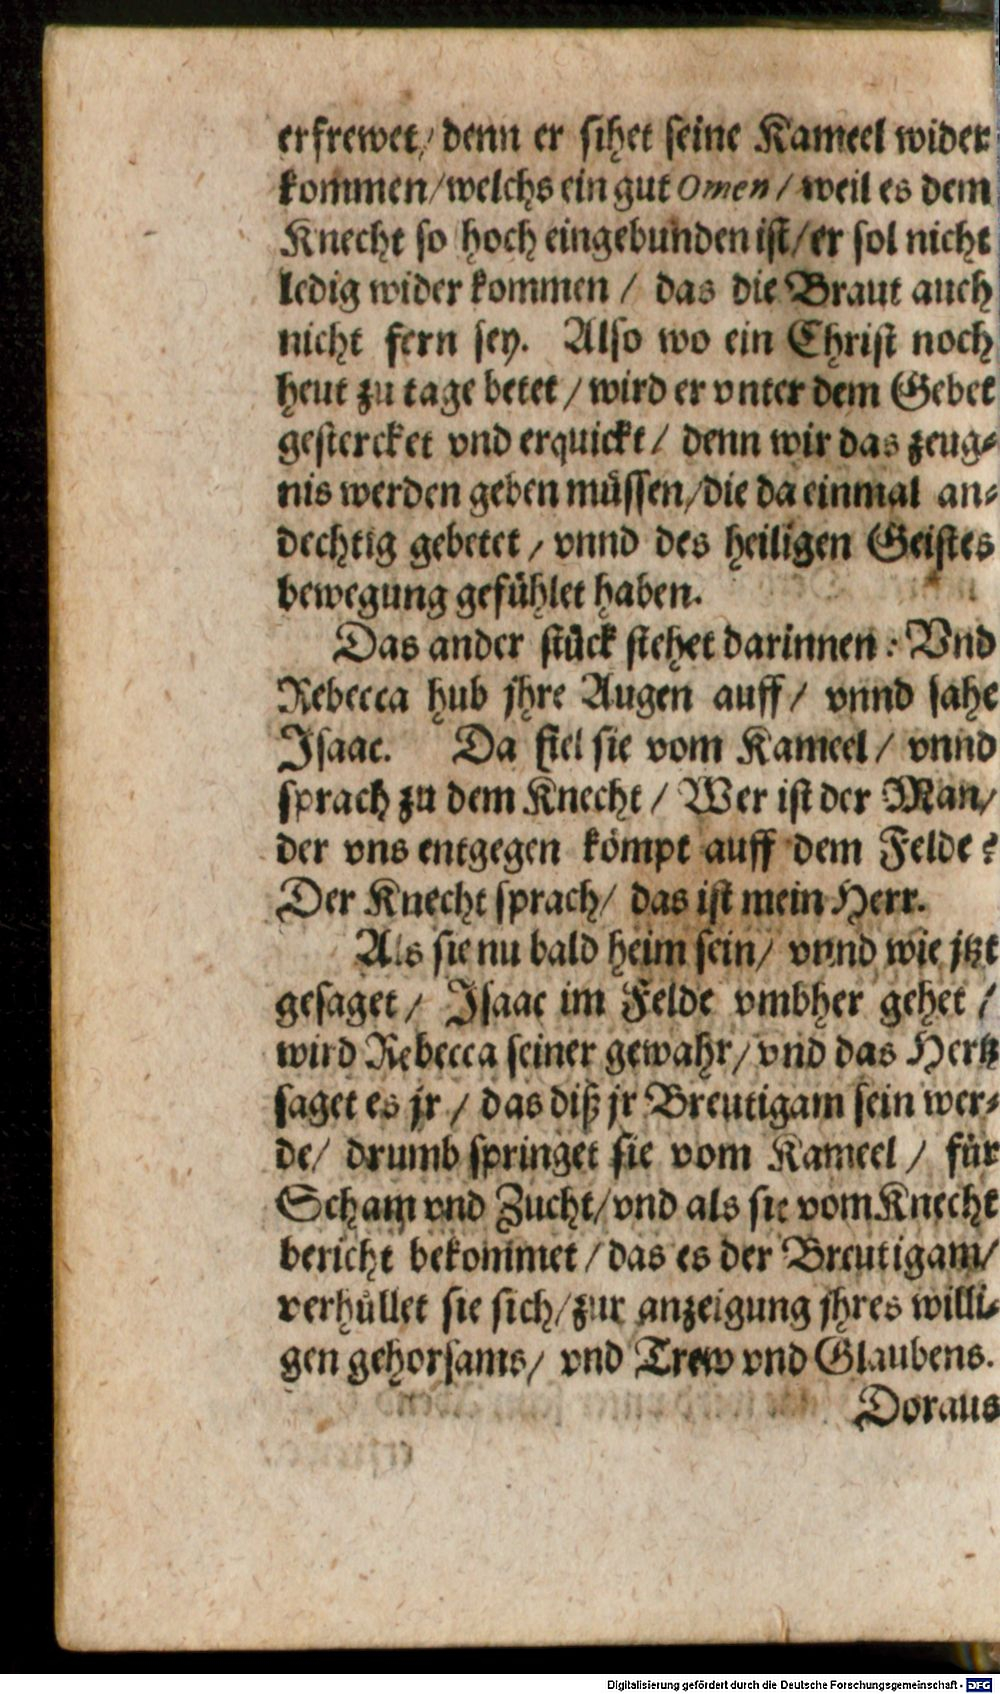 erfrewet / denn er sihet seine Kameel wider
kommen / welchs ein gut Omen / weil es dem
Knecht so hoch eingebunden ist / er sol nicht
ledig wider kommen / das die Braut auch
nicht fern sey. Also wo ein Christ noch
heut zu tage betet / wird er vnter dem Gebet
gestercket vnd erquickt / denn wir das zeug-
nis werden geben müssen / die da einmal an-
dechtig gebetet / vnnd des heiligen Geistes
bewegung gefühlet haben.
Das ander stück stehet darinnen : Vnd
Rebecca hub jhre Augen auff / vnnd sahe
Isaac. Da fiel sie vom Kameel / vnnd
sprach zu dem Knecht / Wer ist der Man /
der vns entgegen kömpt auff dem Felde ?
Der Knecht sprach / das ist mein Herr.
Als sie nu bald heim sein / vnnd wie jtzt
gesaget / Isaac im Felde vmbher gehet /
wird Rebecca seiner gewahr / vnd das Hertz
saget es jr / das diß jr Breutigam sein wer-
de / drumb springet sie vom Kameel / für
Scham vnd Zucht / vnd als sie vom Knecht
bericht bekommet / das es der Breutigam /
verhüllet sie sich / zur anzeigung jhres willi-
gen gehorsams / vnd Trew vnd Glaubens.
Doraus
Digitalisierung gefördert durch die Deutsche Forschungsgemeinschaft - DFG